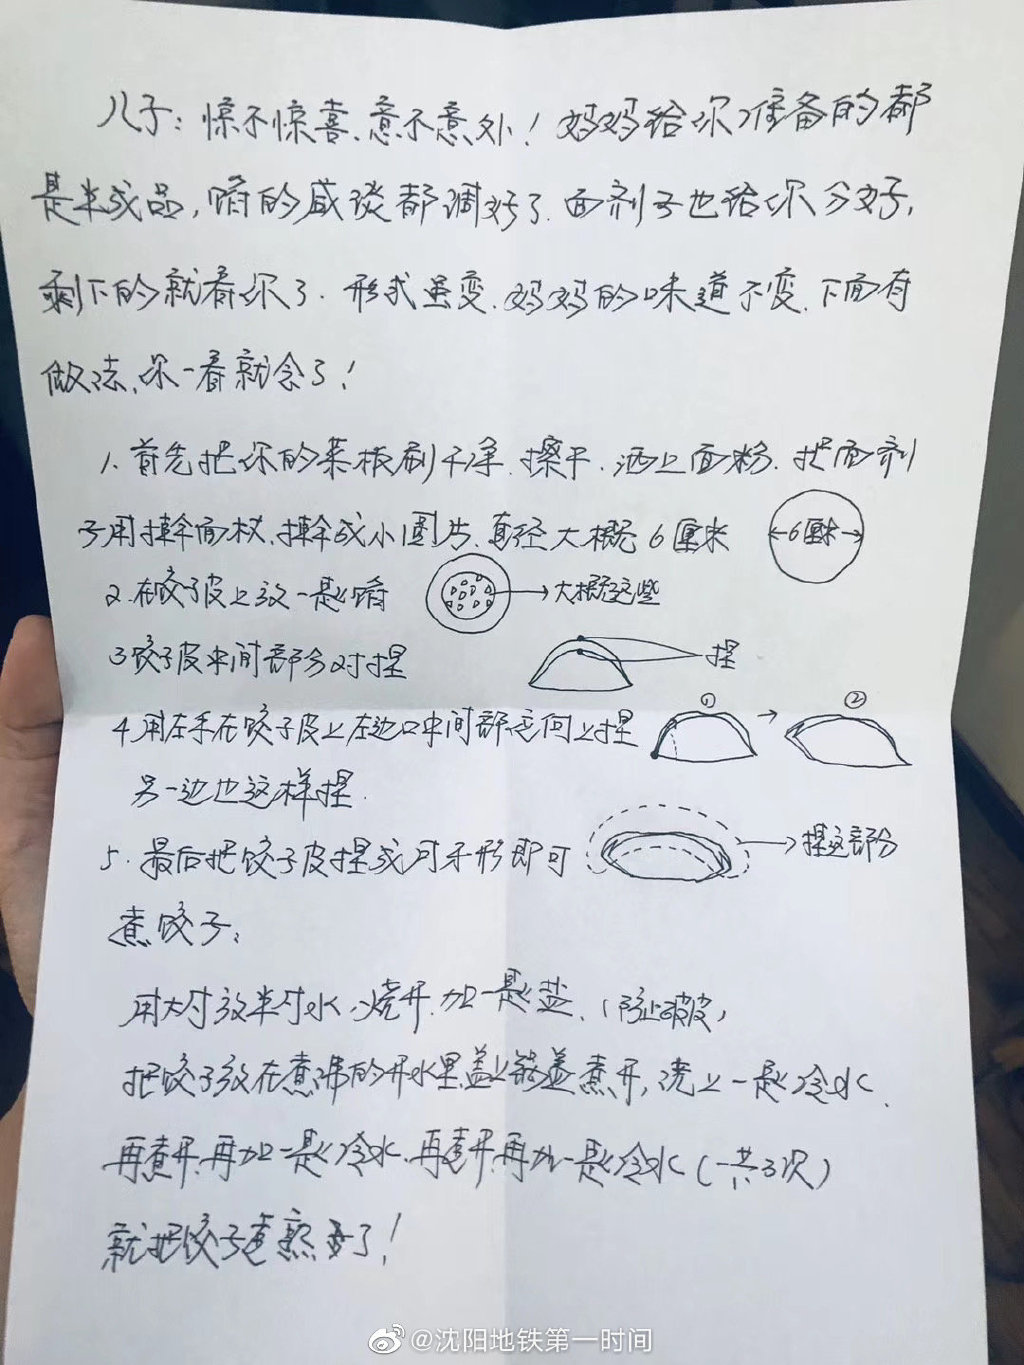 儿子：惊不惊喜、意不意外！妈妈给你准备的都
是半成品，馅的咸淡都调好了．面剂子也给你分好，
剩下的就看你了．形式虽变．妈妈的味道不变．下面有
做法，你一看就会了！
1、首先把你的菜板刷干净．擦干．洒上面粉．把面剂
子用擀面杖，擀成小圆片、直径大概6厘米
6厘米
2．在饺子皮上放一匙馅
大概这些
3饺子皮中间部分对捏
捏
4用左手在饺子皮上左边口中间部位向上捏
① ②
另一边也这样捏．
5．最后把饺子皮捏成月牙形即可
捏这部分
煮饺子：
用大锅放半锅水，烧开．加一匙盐、（防止破皮）
把饺子放在煮沸的开水里，盖上锅盖煮开，浇上一匙冷水．
再煮开，再加一匙冷水．再煮开，再加一匙冷水（一共3次）
就把饺子煮熟了！
@沈阳地铁第一时间